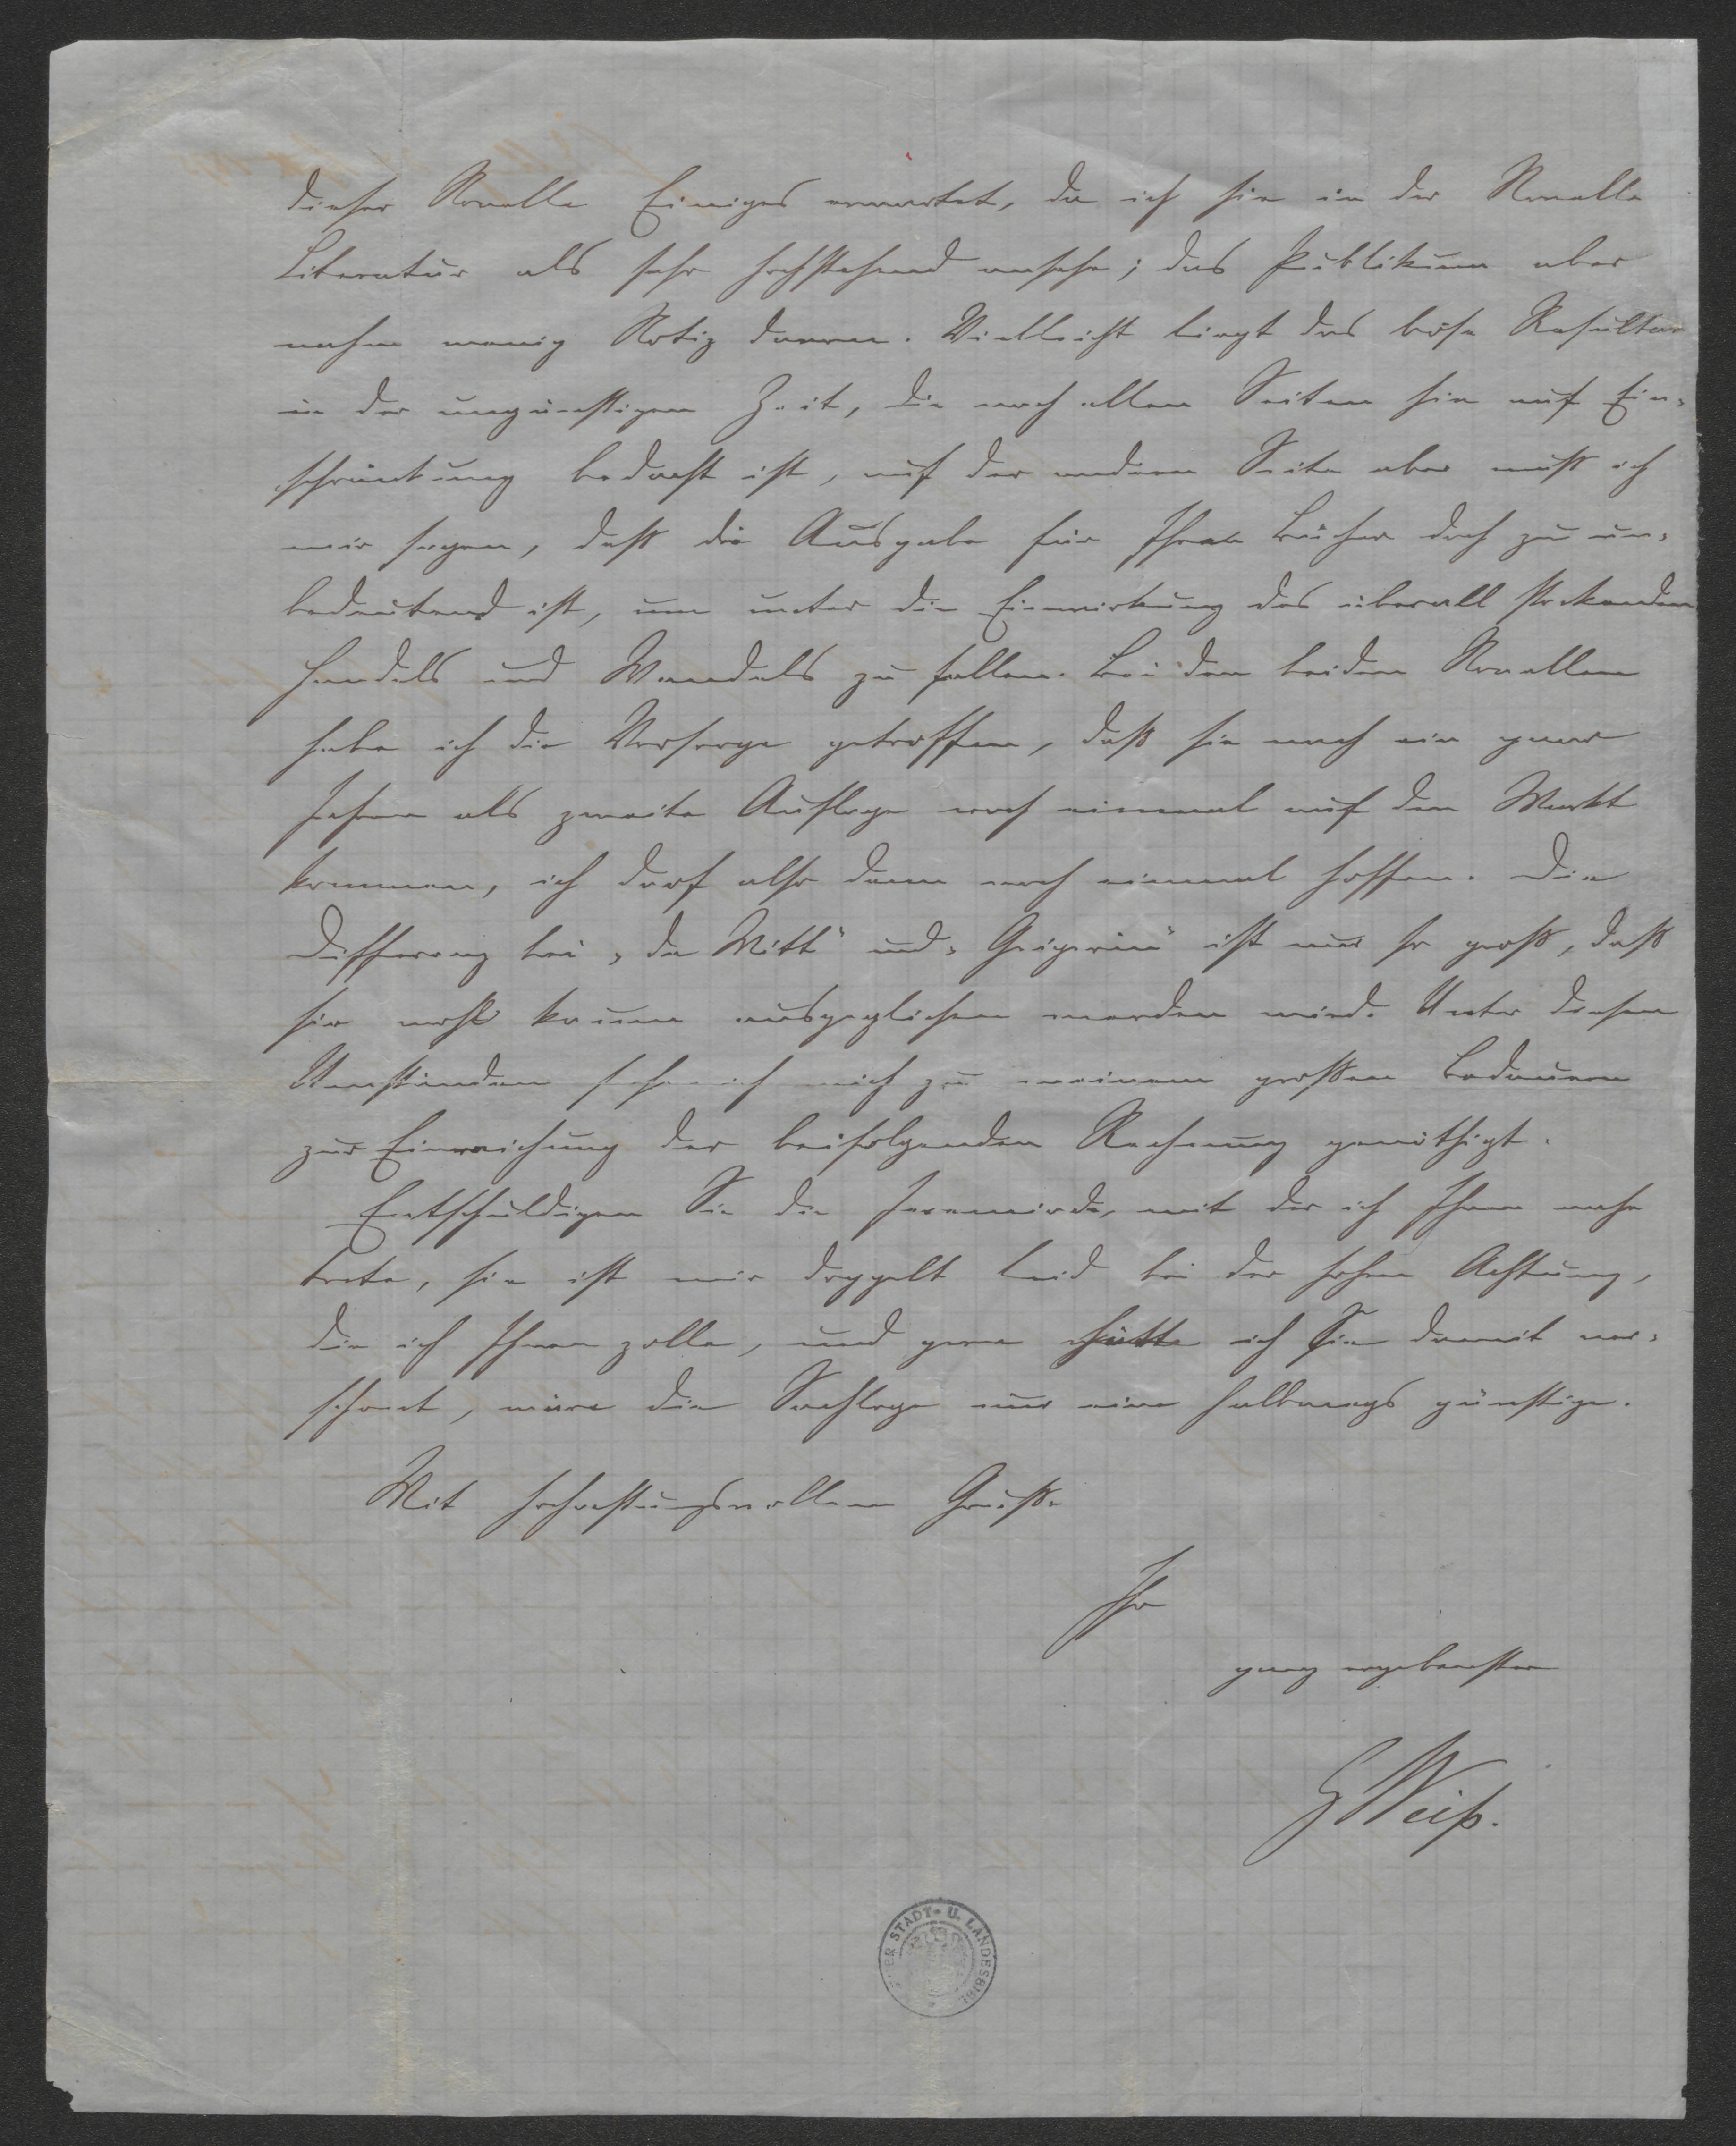 dieser Novelle Einiges erwartet, da ich sie in der Novelle
Literatur als sehr hochstehend ansehe; das Publikum aber
nahm wenig Notiz davon. Vielleicht liegt das böse Resultat
in der ungünstigen Zeit, die nach allen Seiten hin auf Ein-
schränkung bedacht ist, auf der andern Seite aber muß ich
mir sagen, daß die Ausgabe für Ihre Bücher doch zu un-
bedeutend ist, um unter die Einwirkung des überall stockenden
Handels und Wandels zu fallen. Bei den beiden Novellen
habe ich die Vorsorge getroffen, daß sie nach ein paar
Jahren als zweite Auflage noch einmal auf den Markt
kommen, ich darf also dann noch einmal hoffen. Die
Differenz bei „de Witt" und „Geigerin" ist nur so groß, daß
sie wohl kaum ausgeglichen werden wird. Unter diesen
Umständen sehe ich mich zu meinem großen Bedauern
zur Einreichung der beifolgenden Rechnung genöthigt.
Entschuldigen Sie die Jeremiade, mit der ich Ihnen nahe
trete, sie ist mir doppelt leid bei der hohen Achtung,
die ich Ihnen zolle, und gern hätte ich Sie damit ver-
schont, wäre die Sachlage nur eine halbwegs günstige.
Mit hochachtungsvollem Gruße
Ihr
ganz ergebenster
G Weiß.
STADT- U. LANDESBIBL.